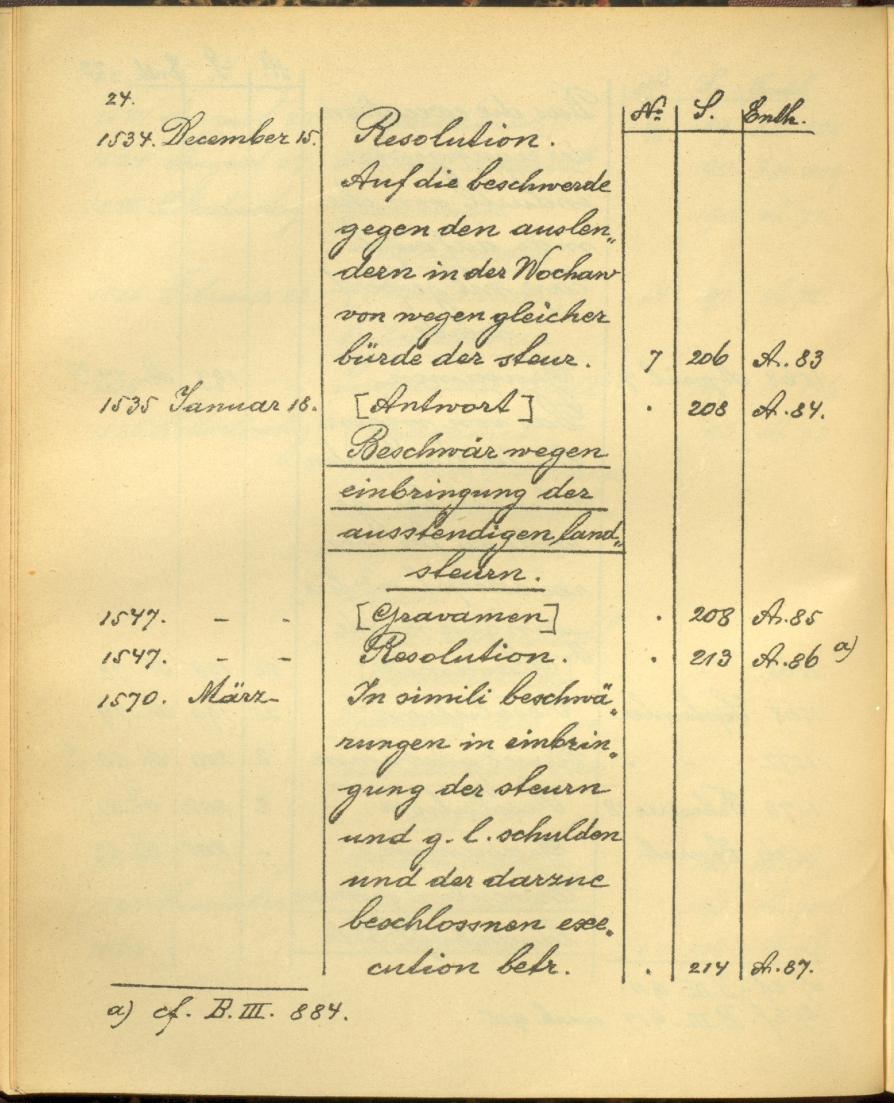 24.
№ S. Enth.
1534. December 15. Resolution.
Auf die beschwerde
gegen den auslen„
dern in der Wochaw
von wegen gleicher
bürde der steur. 7 206 A. 83
1535 Januar 18. [Antwort] . 208 A. 84.
Beschwär wegen
einbringung der
ausstendigen land„
steurn.
1547. - - [Gravamen] . 208 A. 85
1547. - - Resolution. . 213 A. 86 a)
1570. März - In simili beschwä„
rungen in einbrin„
gung der steurn
und g. l. schulden
und der darzue
beschlossnen exe„
cution betr. . 214 A. 87.
a) cf. B. III. 884.